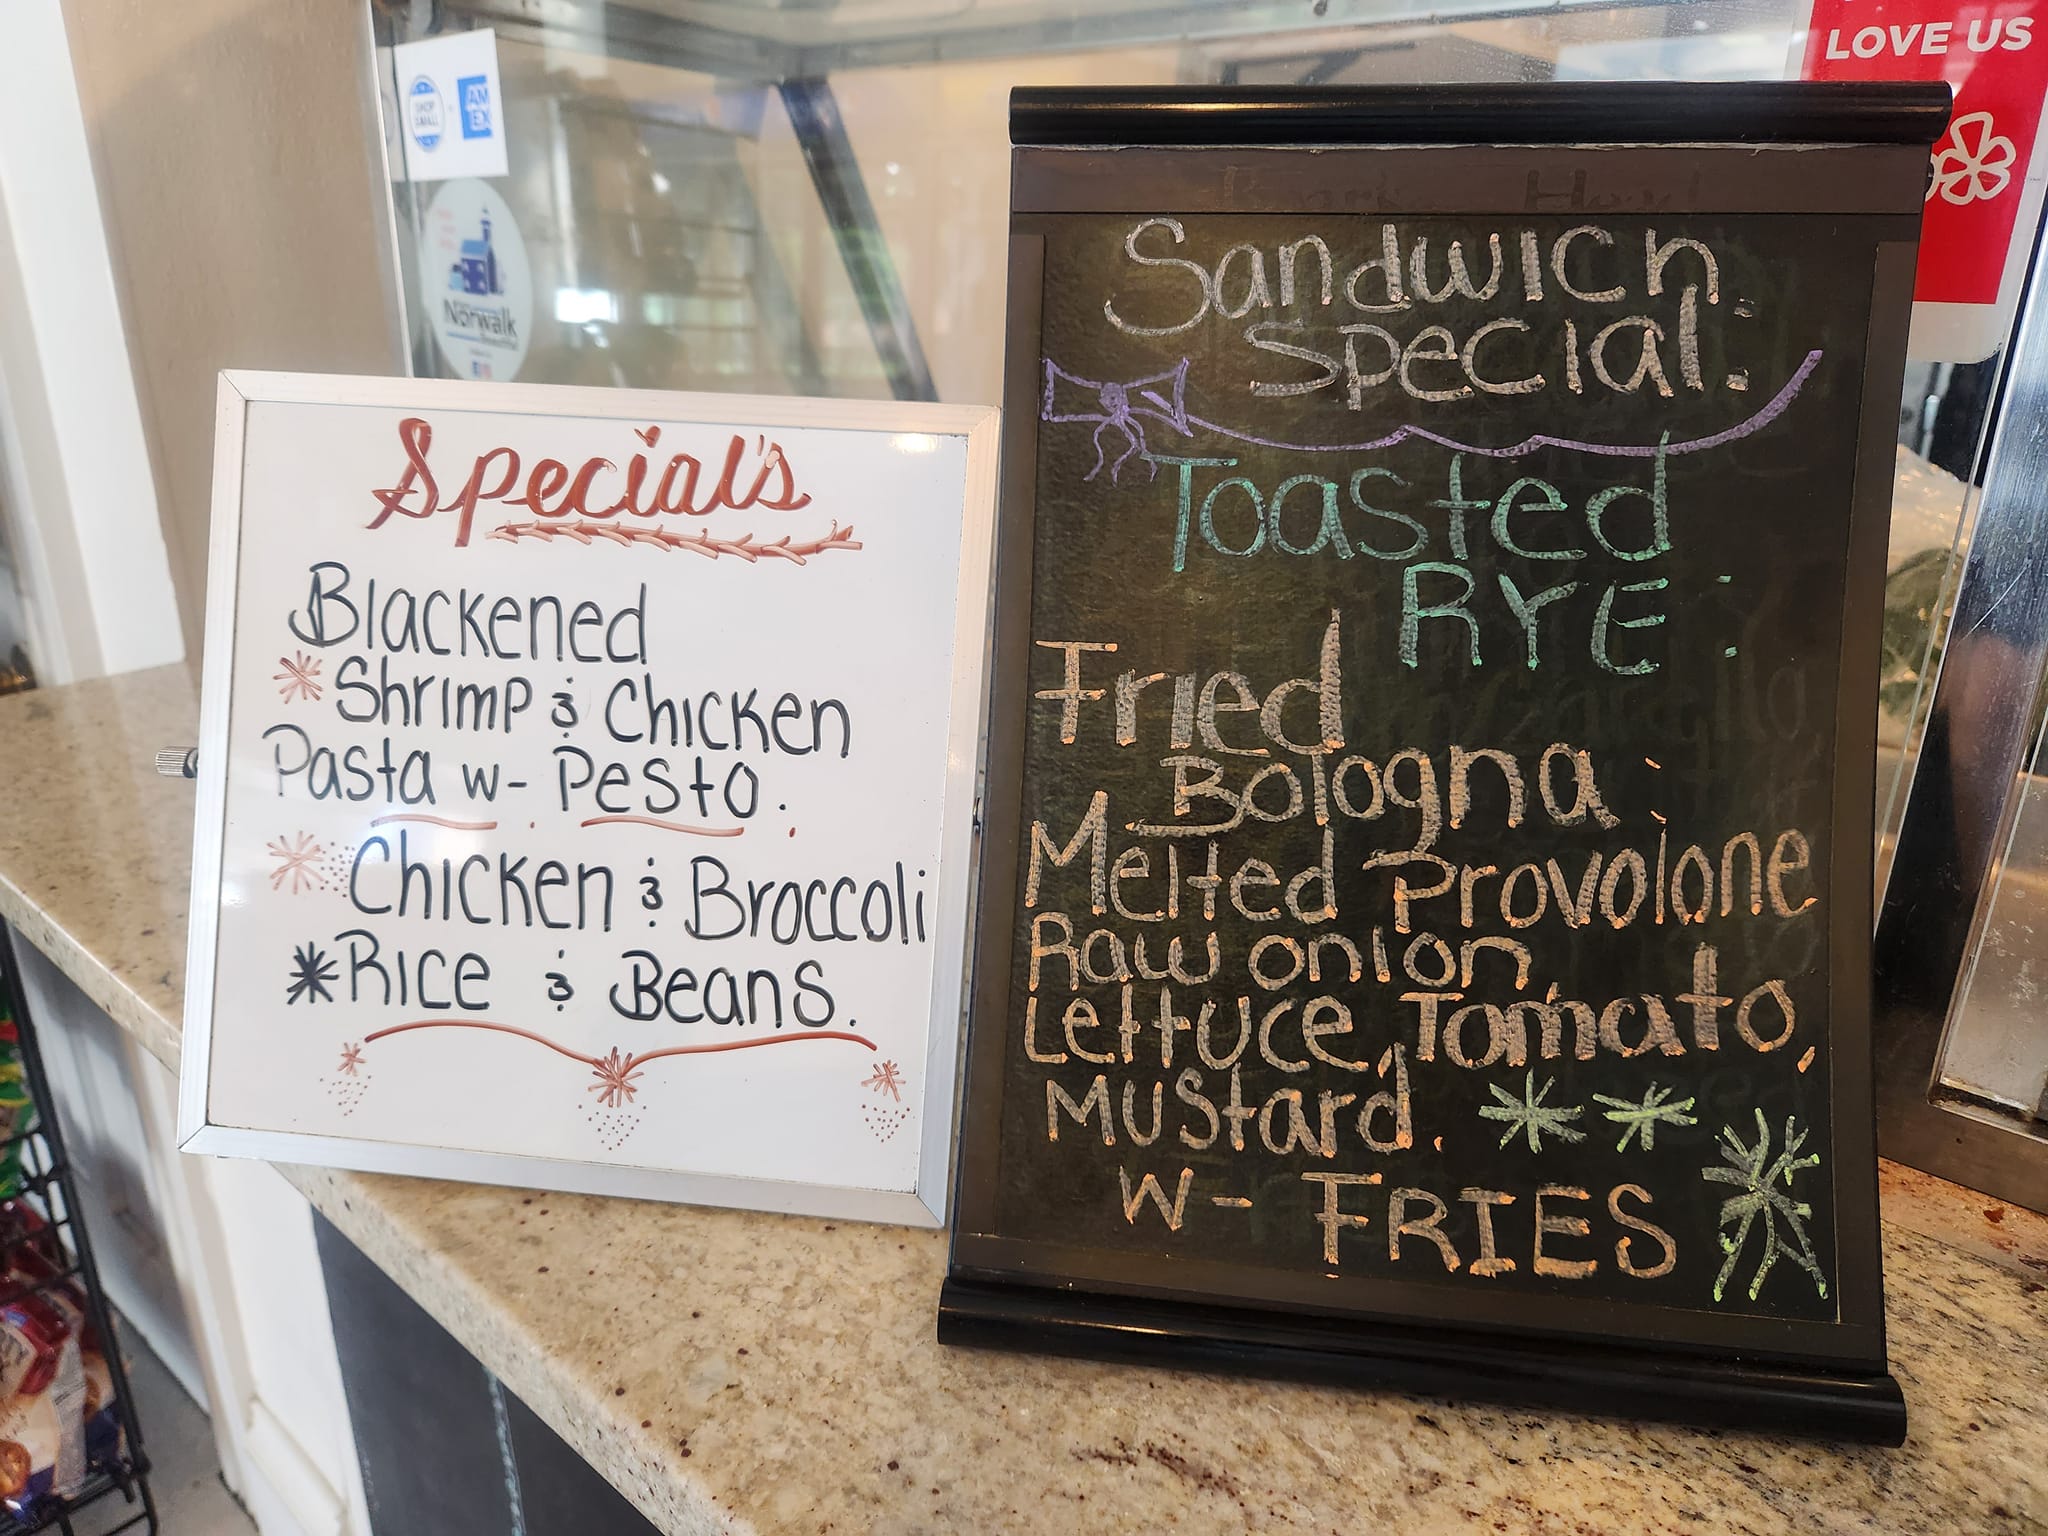 LOVE US
SHOP
SMALL
AM
EX
Norwalk
Special's
Blackened
Shrimp & Chicken
Pasta w- Pesto.
Chicken & Broccoli
Rice & Beans.
Sandwich
Special:
Toasted
RYE:
Fried
Bologna:
Melted Provolone,
Raw onion,
Lettuce, Tomato,
Mustard.
W- FRIES